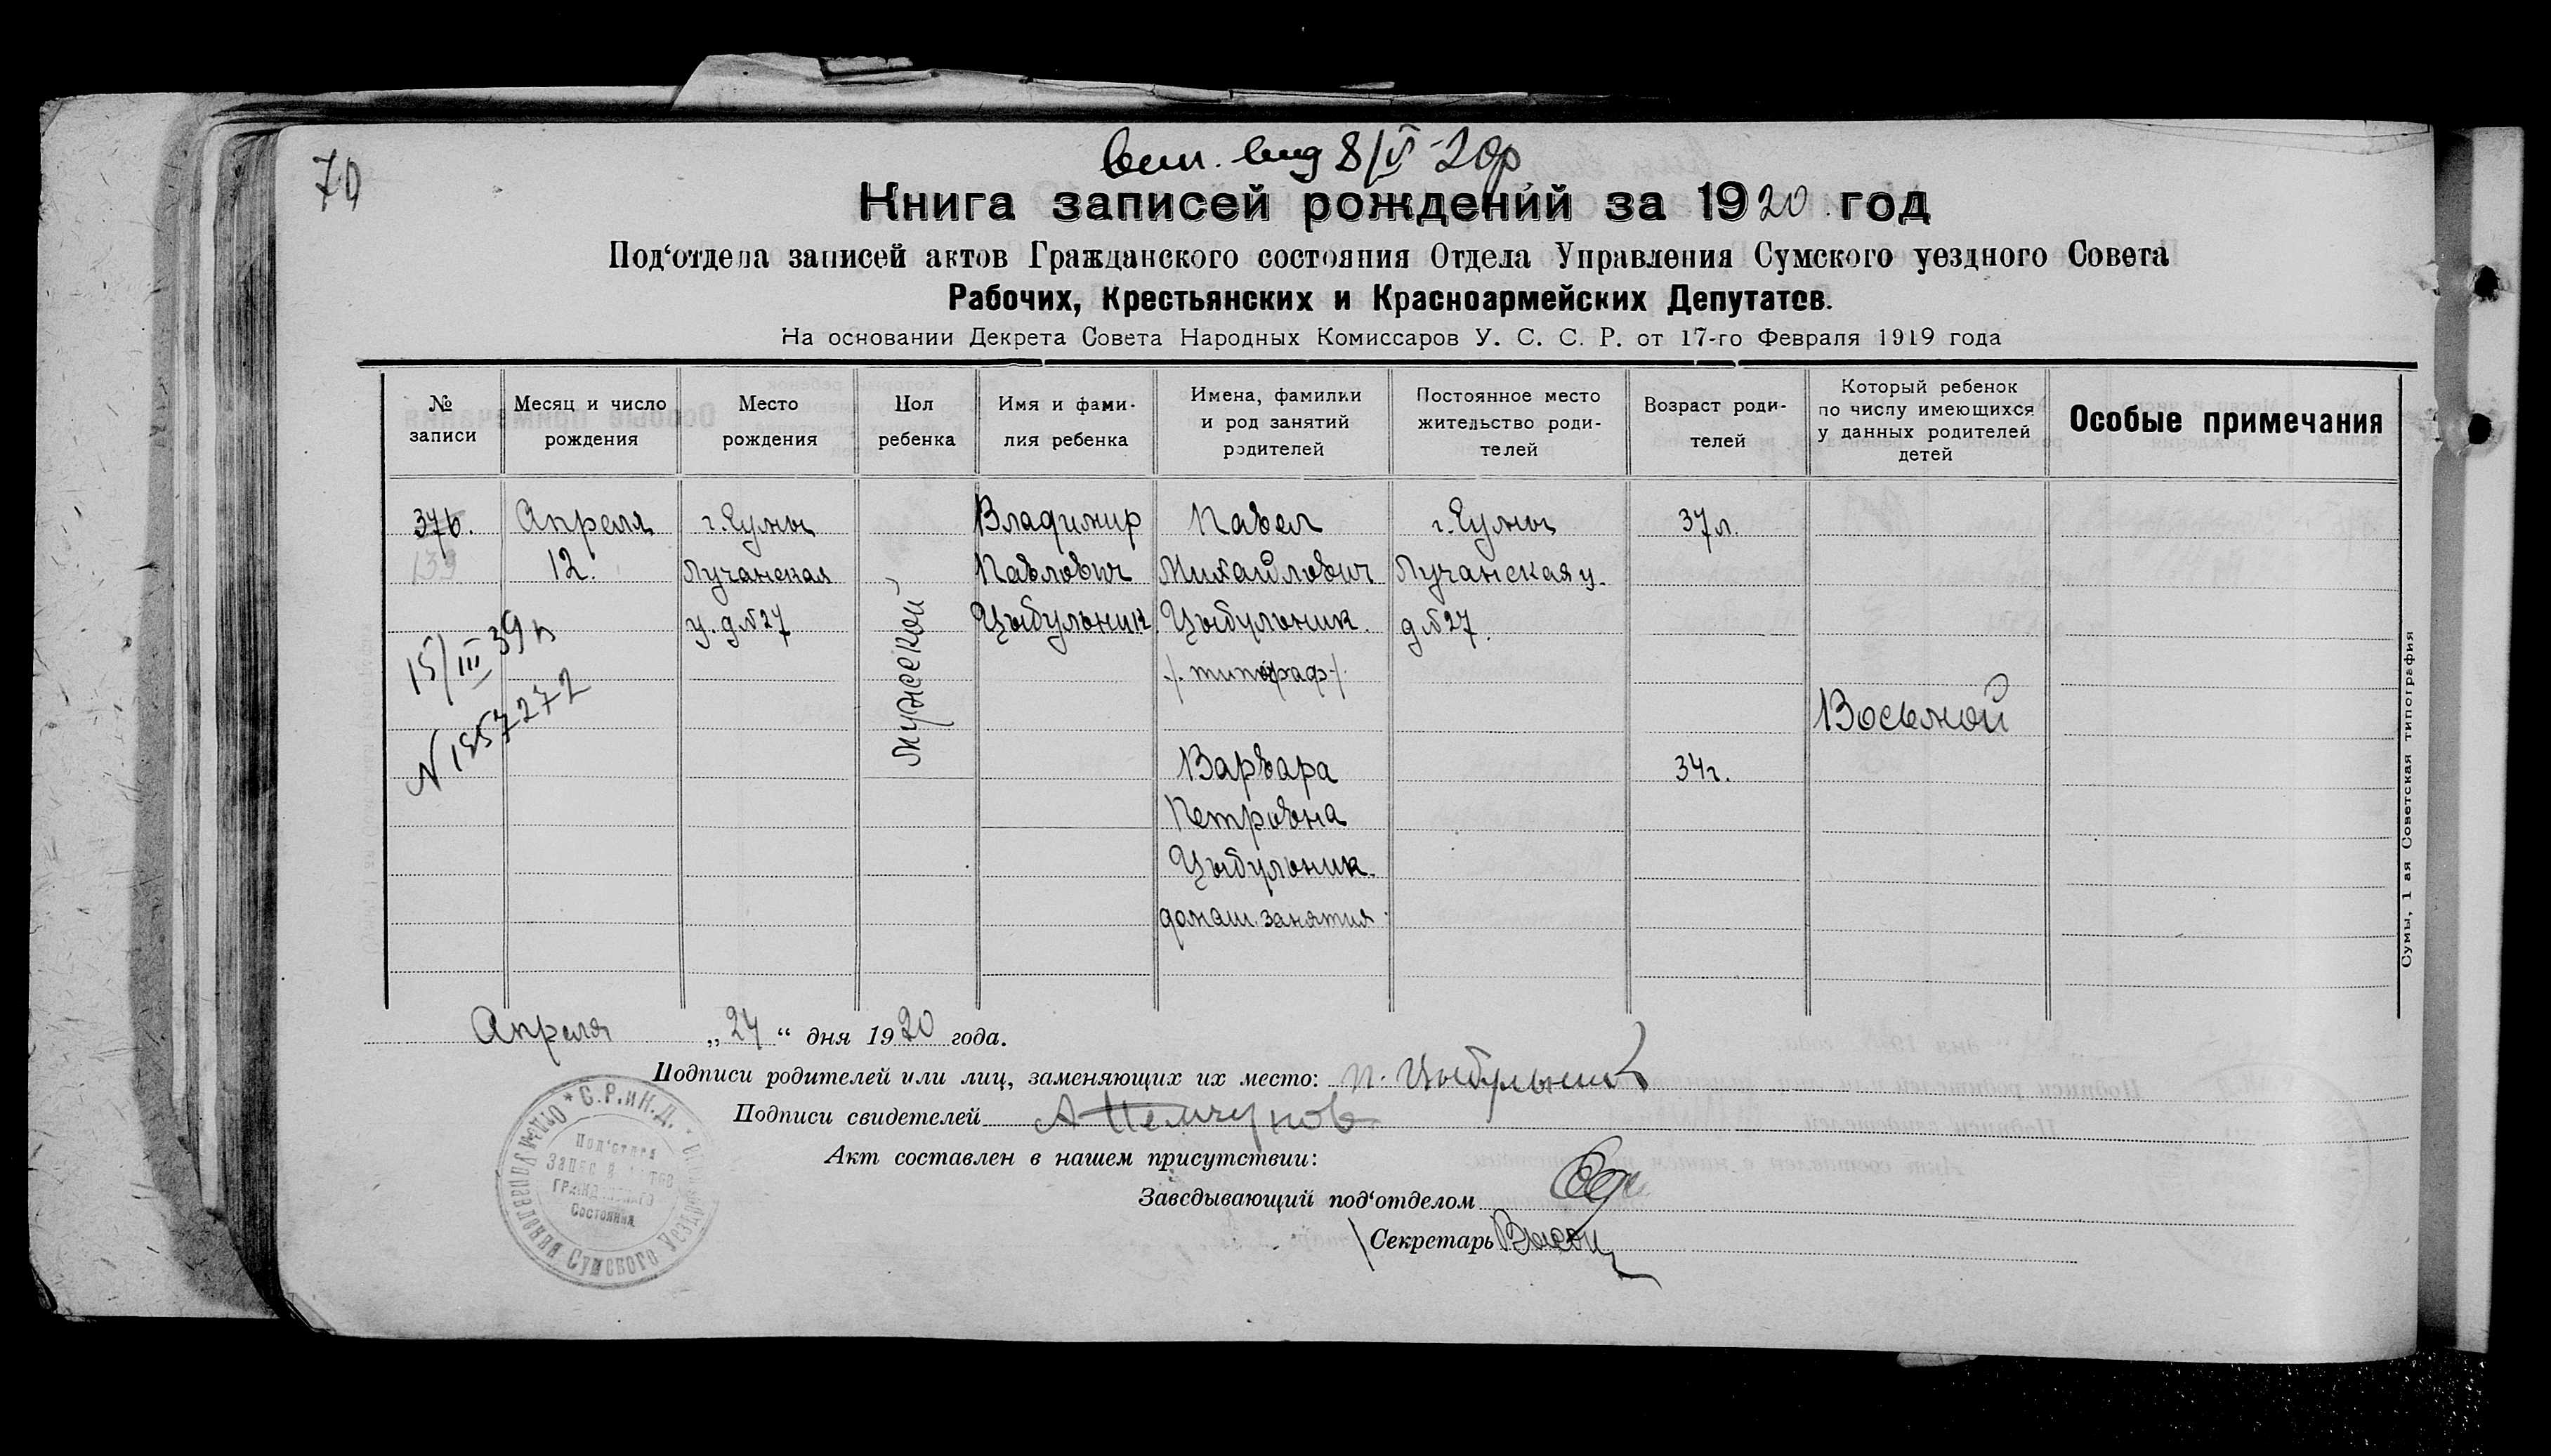 70
вып. вид 8/V-20р
Книга записей рождений за 1920 год
Под‘отдела записей актов Гражданского состояния Отдела Управления Сумского уездного Совета
Рабочих, Крестьянских и Красноармейских Депутатов.
На основании Декрета Совета Народных Комиссаров У. С. С. Р. от 17-го Февраля 1919 года
№ записи
Месяц и число рождения
Место рождения
Пол ребенка
Имя и фамилия ребенка
Имена, фамилии и род занятий родителей
Постоянное место жительство родителей
Возраст родителей
Который ребенок по числу имеющихся у данных родителей детей
Особые примечания
376.
139
15/III 39 п
N 1857272
Апреля
12.
г. Сумы
Лучанская
у. д №27
Мужской
Владимир
Павлович
Цыбульник
Павел
Михайлович
Цыбульник.
/типограф/
Варвара
Петровна
Цыбульник.
домаш. занятия
г. Сумы
Лучанская у.
д №27.
37 л.
34 г.
Восьмой
Сумы, 1 ая Советская типография
Апреля „24“ дня 1920 года.
Подписи родителей или лиц, заменяющих их место: П. Цыбульник
Подписи свидетелей
Акт составлен в нашем присутствии:
Заведывающий под‘отделом
Секретарь
С.Р.иК.Д. Отдел Управления Сумского Уездного
Под‘отдел
Записи Актов
Гражданского
Состояния